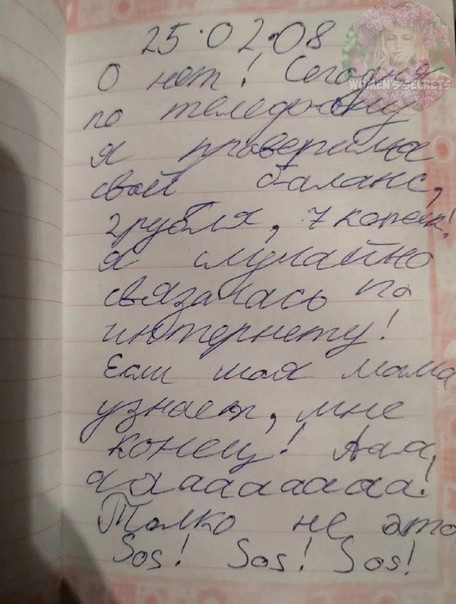 25.02.08
О нет! Сегодня
WOMEN'S SECRETS
по телефону
я проверила
свой баланс,
2 рубля, 7 копеек!
Я случайно
связалась по
интернету!
Если моя мама
узнает, мне
конец! Ааа,
ааааааааа!
Толко не это
Sos! Sos! Sos!